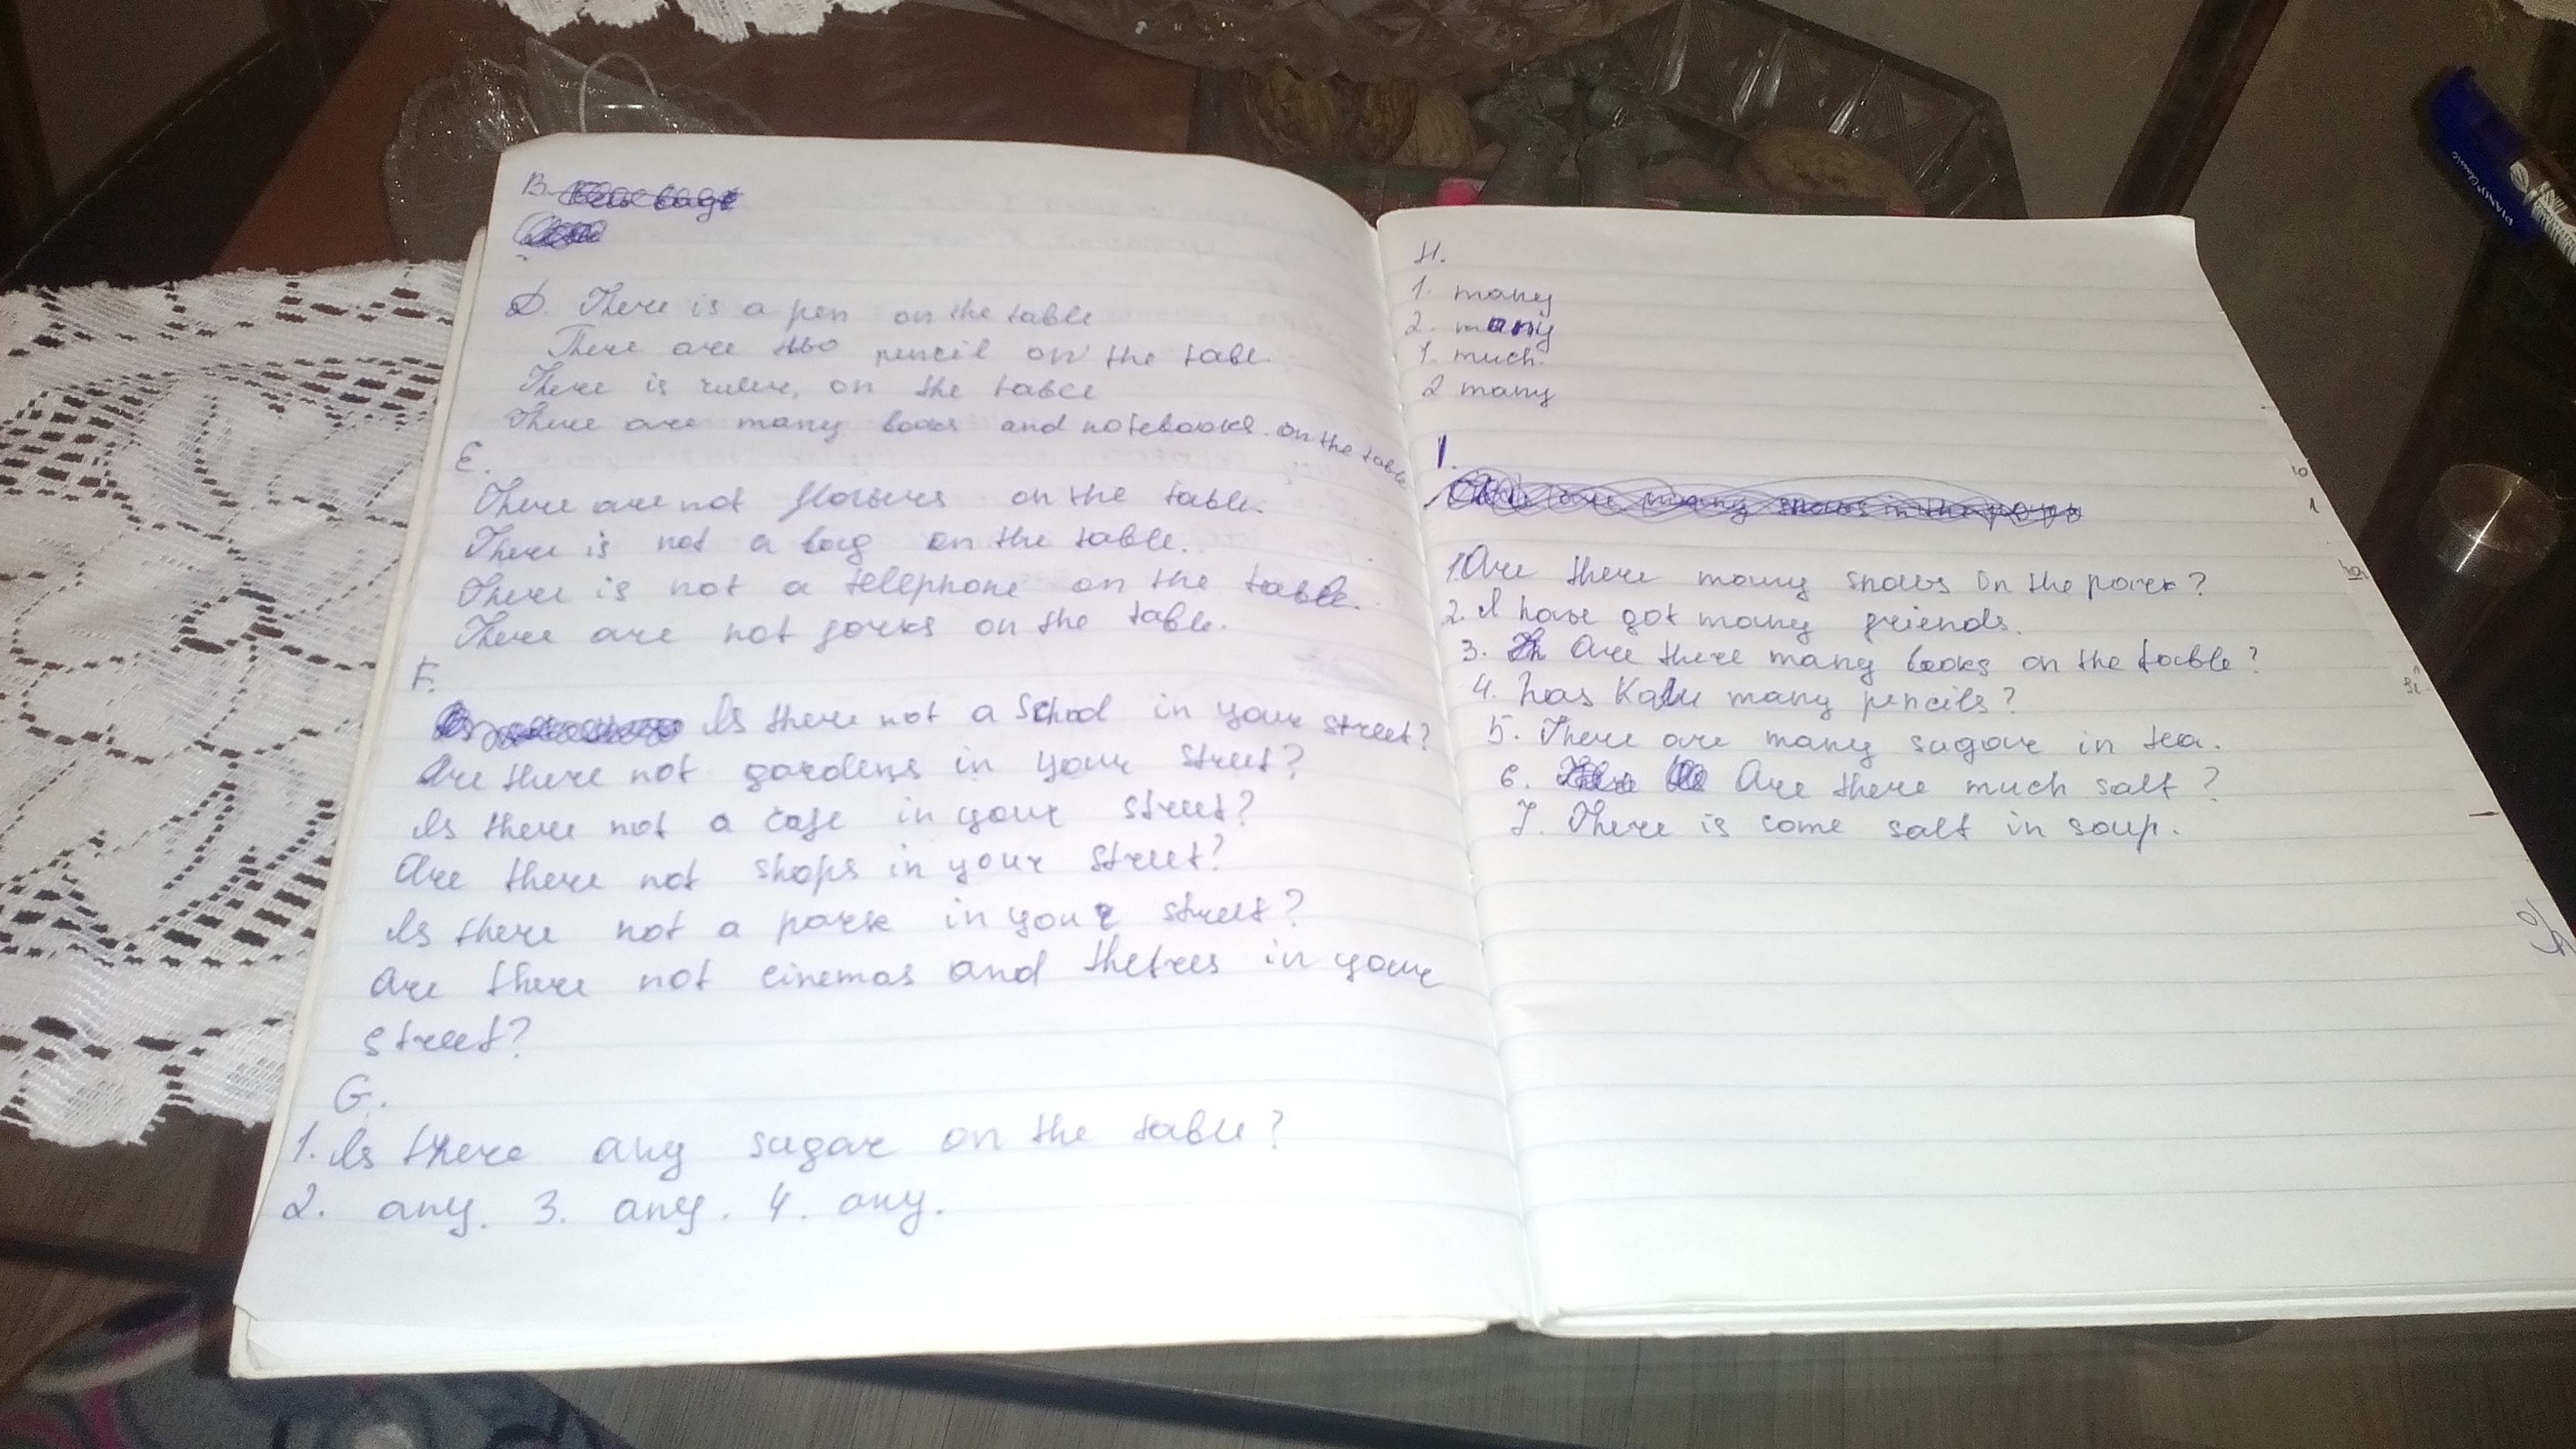 B.
D. There is a pen on the table
There are two pencil on the tabl.
There is ruler, on the table
There are many books and notebooks. on the table
E.
There are not flowers on the table.
There is not a bag on the table.
There is not a telephone on the table.
There are not forks on the table.
F.
Is there not a School in your street?
Are there not gardens in your street?
Is there not a cafe in your street?
Are there not shops in your street?
Is there not a park in your street?
Are there not cinemas and thetres in your
street?
G.
1. Is there any sugar on the table?
2. any. 3. any. 4. any.
H.
1. many
2. many
1. much.
2 many
I.
1. Are there many snows in the park?
2. I have got many friends.
3. Are there many books on the table?
4. has many pencils?
5. There are many sugar in tea.
6. Are there much salt?
7. There is some salt in soup.
PIANO Classic